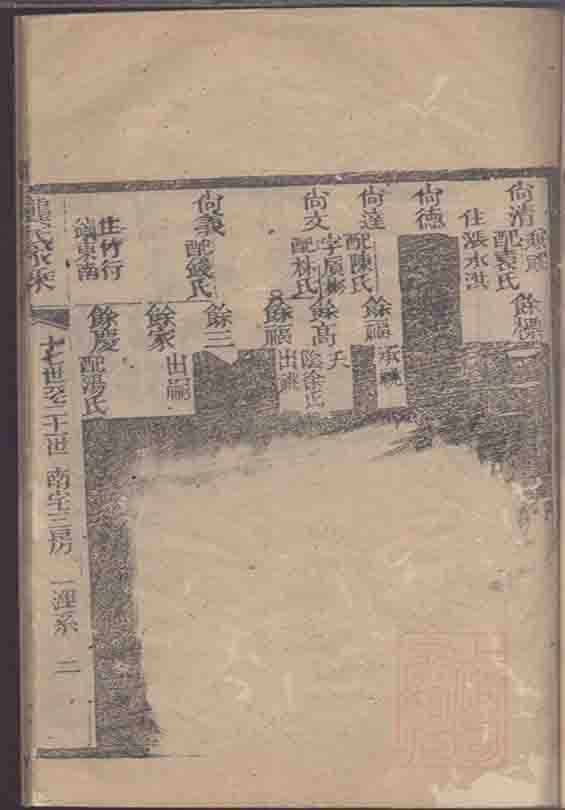 尙清
配袁氏
住漲水洪
尙德
尙達
配陳氏
尙文
字質彬
配林氏
尙義
配錢氏
住竹行
鎮東南
餘標
餘福
承祧
餘高
夭
餘福
出嗣
餘三
餘家
出嗣
餘慶
配湯氏
龔氏家乘
十七世至二十一世 南宅三房 一湮系 二